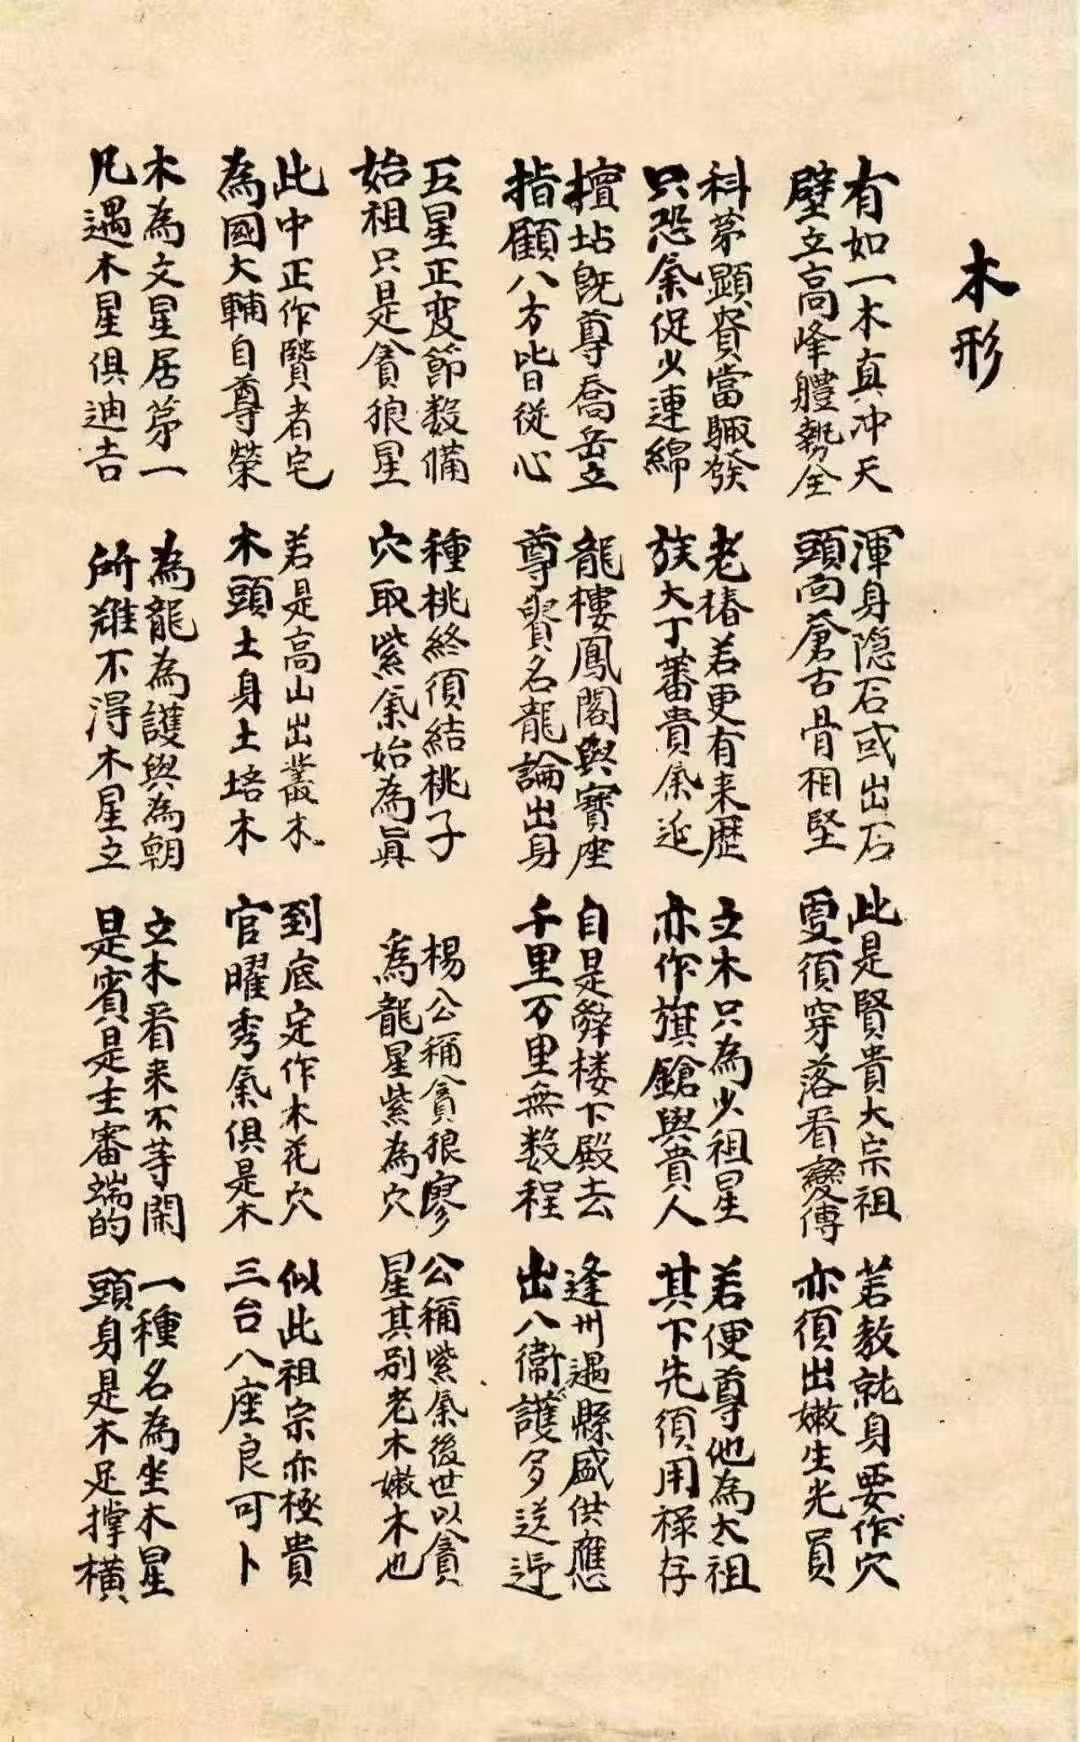 木形
有如一木真冲天
壁立高峰體勢全
渾身隐石或出石
頭面蒼古骨相堅
此是賢貴大宗祖
更須穿落看變傳
若教就身要作穴
亦須出嫩生光員
科苐顯貴當驟發
只恐氣促少連綿
老椿若更有来歴
族大丁蕃貴氣延
立木只為少祖星
亦作旗鎗與貴人
若便尊他為太祖
其下先須用禄存
擅坫既尊喬岳立
指顧八方皆従心
龍樓鳳閣與寳座
尊賢名龍論出身
自是辭楼下殿去
千里万里無数程
逢州遇縣盛供應
出入衛護多送迎
五星正変節数備
始祖只是貪狼星
種桃終須結桃子
穴取紫氣始為眞
楊公稱貪狼廖公稱紫氣後世以貪
為龍星紫為穴星其别老木嫩木也
此中正作賢者宅
為國大輔自尊榮
若是高山出叢木
木頭土身土培木
到底定作木花穴
官曜秀氣俱是木
似此祖宗亦極貴
三台八座良可卜
木為文星居苐一
凡遇木星俱迪吉
為龍為護與為朝
所難不淂木星立
立木看来不等閑
是賓是主審端的
一種名為坐木星
頭身是木足撑橫